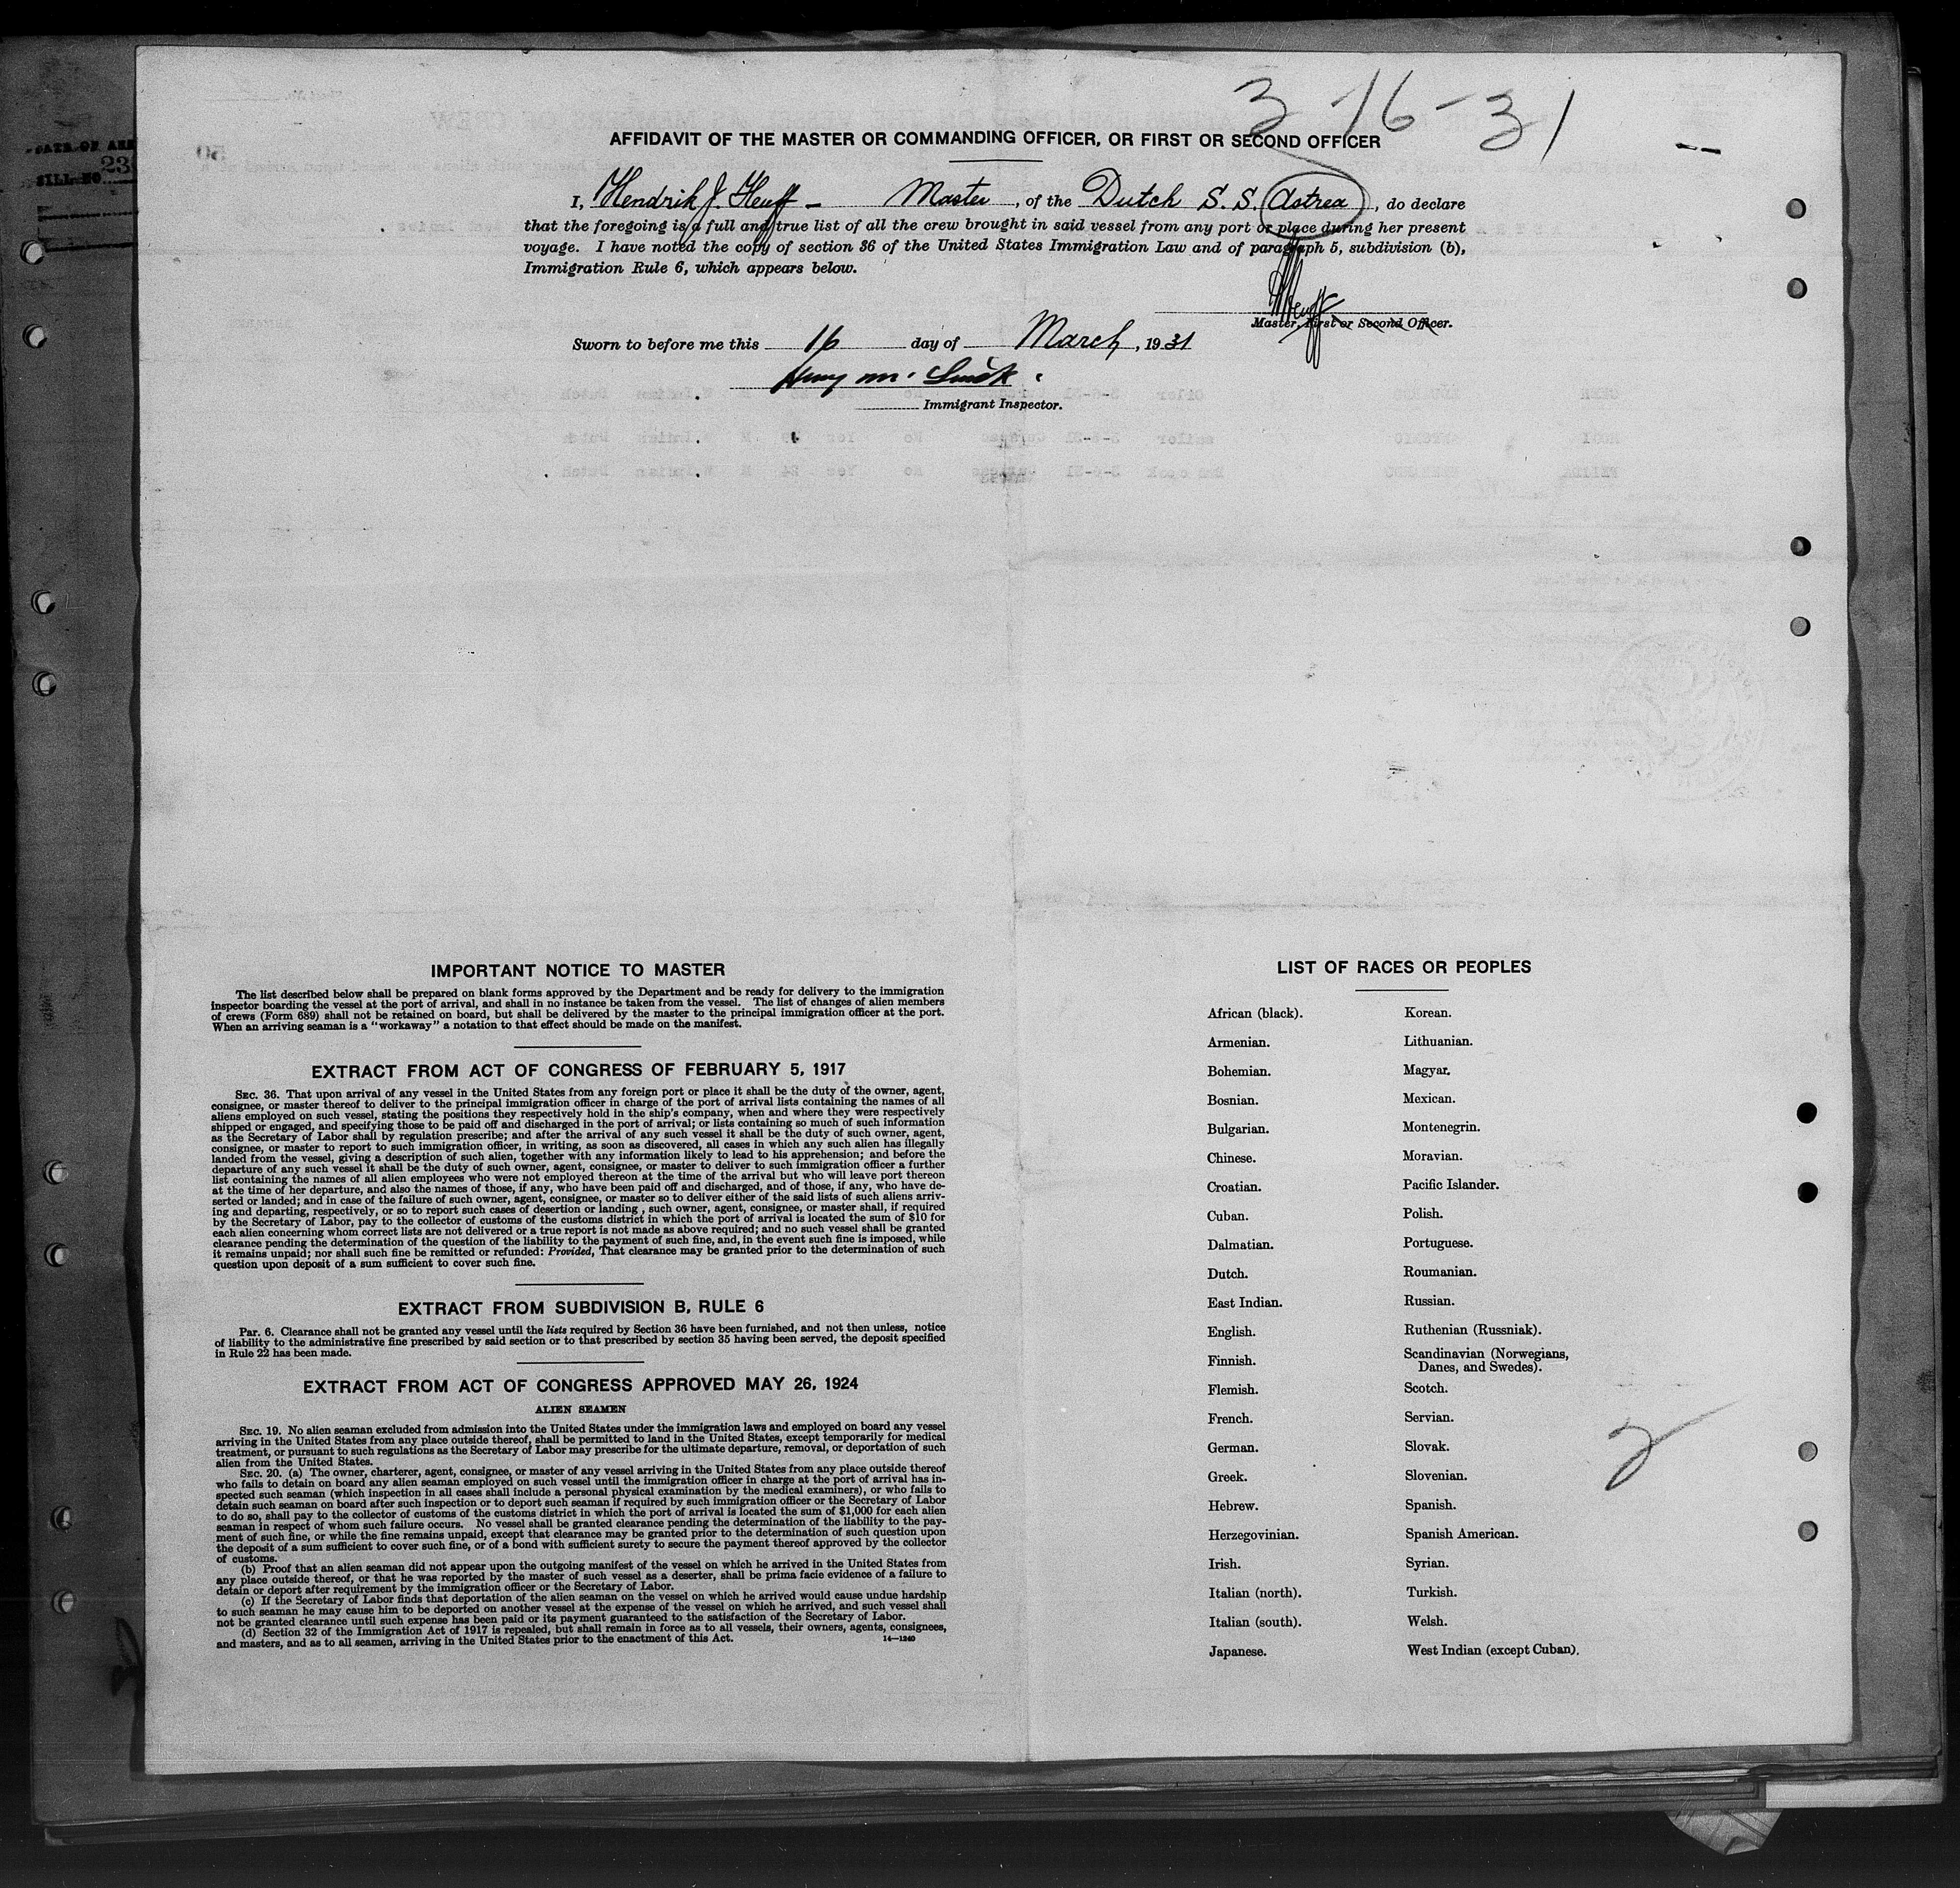 3-16-31
DATE OF ARR
BILL NO. 23
AFFIDAVIT OF THE MASTER OR COMMANDING OFFICER, OR FIRST OR SECOND OFFICER
I, Hendrik J. Heuff - Master, of the Dutch S. S. Astrea, do declare
that the foregoing is a full and true list of all the crew brought in said vessel from any port or place during her present
voyage. I have noted the copy of section 36 of the United States Immigration Law and of paragraph 5, subdivision (b),
Immigration Rule 6, which appears below.
Heuff
Master, First or Second Officer.
Sworn to before me this 16 day of March, 1931
Immigrant Inspector.
IMPORTANT NOTICE TO MASTER
The list described below shall be prepared on blank forms approved by the Department and be ready for delivery to the immigration
inspector boarding the vessel at the port of arrival, and shall in no instance be taken from the vessel. The list of changes of alien members
of crews (Form 689) shall not be retained on board, but shall be delivered by the master to the principal immigration officer at the port.
When an arriving seaman is a "workaway" a notation to that effect should be made on the manifest.
EXTRACT FROM ACT OF CONGRESS OF FEBRUARY 5, 1917
SEC. 36. That upon arrival of any vessel in the United States from any foreign port or place it shall be the duty of the owner, agent,
consignee, or master thereof to deliver to the principal immigration officer in charge of the port of arrival lists containing the names of all
aliens employed on such vessel, stating the positions they respectively hold in the ship's company, when and where they were respectively
shipped or engaged, and specifying those to be paid off and discharged in the port of arrival; or lists containing so much of such information
as the Secretary of Labor shall by regulation prescribe; and after the arrival of any such vessel it shall be the duty of such owner, agent,
consignee, or master to report to such immigration officer, in writing, as soon as discovered, all cases in which any such alien has illegally
landed from the vessel, giving a description of such alien, together with any information likely to lead to his apprehension; and before the
departure of any such vessel it shall be the duty of such owner, agent, consignee, or master to deliver to such immigration officer a further
list containing the names of all alien employees who were not employed thereon at the time of the arrival but who will leave port thereon
at the time of her departure, and also the names of those, if any, who have been paid off and discharged, and of those, if any, who have de-
serted or landed; and in case of the failure of such owner, agent, consignee, or master so to deliver either of the said lists of such aliens arriv-
ing and departing, respectively, or so to report such cases of desertion or landing , such owner, agent, consignee, or master shall, if required
by the Secretary of Labor, pay to the collector of customs of the customs district in which the port of arrival is located the sum of $10 for
each alien concerning whom correct lists are not delivered or a true report is not made as above required; and no such vessel shall be granted
clearance pending the determination of the question of the liability to the payment of such fine, and, in the event such fine is imposed, while
it remains unpaid; nor shall such fine be remitted or refunded: Provided, That clearance may be granted prior to the determination of such
question upon deposit of a sum sufficient to cover such fine.
EXTRACT FROM SUBDIVISION B, RULE 6
Par. 6. Clearance shall not be granted any vessel until the lists required by Section 36 have been furnished, and not then unless, notice
of liability to the administrative fine prescribed by said section or to that prescribed by section 35 having been served, the deposit specified
in Rule 22 has been made.
EXTRACT FROM ACT OF CONGRESS APPROVED MAY 26, 1924
ALIEN SEAMEN
SEC. 19. No alien seaman excluded from admission into the United States under the immigration laws and employed on board any vessel
arriving in the United States from any place outside thereof, shall be permitted to land in the United States, except temporarily for medical
treatment, or pursuant to such regulations as the Secretary of Labor may prescribe for the ultimate departure, removal, or deportation of such
alien from the United States.
SEC. 20. (a) The owner, charterer, agent, consignee, or master of any vessel arriving in the United States from any place outside thereof
who fails to detain on board any alien seaman employed on such vessel until the immigration officer in charge at the port of arrival has in-
spected such seaman (which inspection in all cases shall include a personal physical examination by the medical examiners), or who fails to
detain such seaman on board after such inspection or to deport such seaman if required by such immigration officer or the Secretary of Labor
to do so, shall pay to the collector of customs of the customs district in which the port of arrival is located the sum of $1,000 for each alien
seaman in respect of whom such failure occurs. No vessel shall be granted clearance pending the determination of the liability to the pay-
ment of such fine, or while the fine remains unpaid, except that clearance may be granted prior to the determination of such question upon
the deposit of a sum sufficient to cover such fine, or of a bond with sufficient surety to secure the payment thereof approved by the collector
of customs.
(b) Proof that an alien seaman did not appear upon the outgoing manifest of the vessel on which he arrived in the United States from
any place outside thereof, or that he was reported by the master of such vessel as a deserter, shall be prima facie evidence of a failure to
detain or deport after requirement by the immigration officer or the Secretary of Labor.
(c) If the Secretary of Labor finds that deportation of the alien seaman on the vessel on which he arrived would cause undue hardship
to such seaman he may cause him to be deported on another vessel at the expense of the vessel on which he arrived, and such vessel shall
not be granted clearance until such expense has been paid or its payment guaranteed to the satisfaction of the Secretary of Labor.
(d) Section 32 of the Immigration Act of 1917 is repealed, but shall remain in force as to all vessels, their owners, agents, consignees,
and masters, and as to all seamen, arriving in the United States prior to the enactment of this Act.
14—1240
LIST OF RACES OR PEOPLES
African (black).
Armenian.
Bohemian.
Bosnian.
Bulgarian.
Chinese.
Croatian.
Cuban.
Dalmatian.
Dutch.
East Indian.
English.
Finnish.
Flemish.
French.
German.
Greek.
Hebrew.
Herzegovinian.
Irish.
Italian (north).
Italian (south).
Japanese.
Korean.
Lithuanian.
Magyar.
Mexican.
Montenegrin.
Moravian.
Pacific Islander.
Polish.
Portuguese.
Roumanian.
Russian.
Ruthenian (Russniak).
Scandinavian (Norwegians,
Danes, and Swedes).
Scotch.
Servian.
Slovak.
Slovenian.
Spanish.
Spanish American.
Syrian.
Turkish.
Welsh.
West Indian (except Cuban).
2